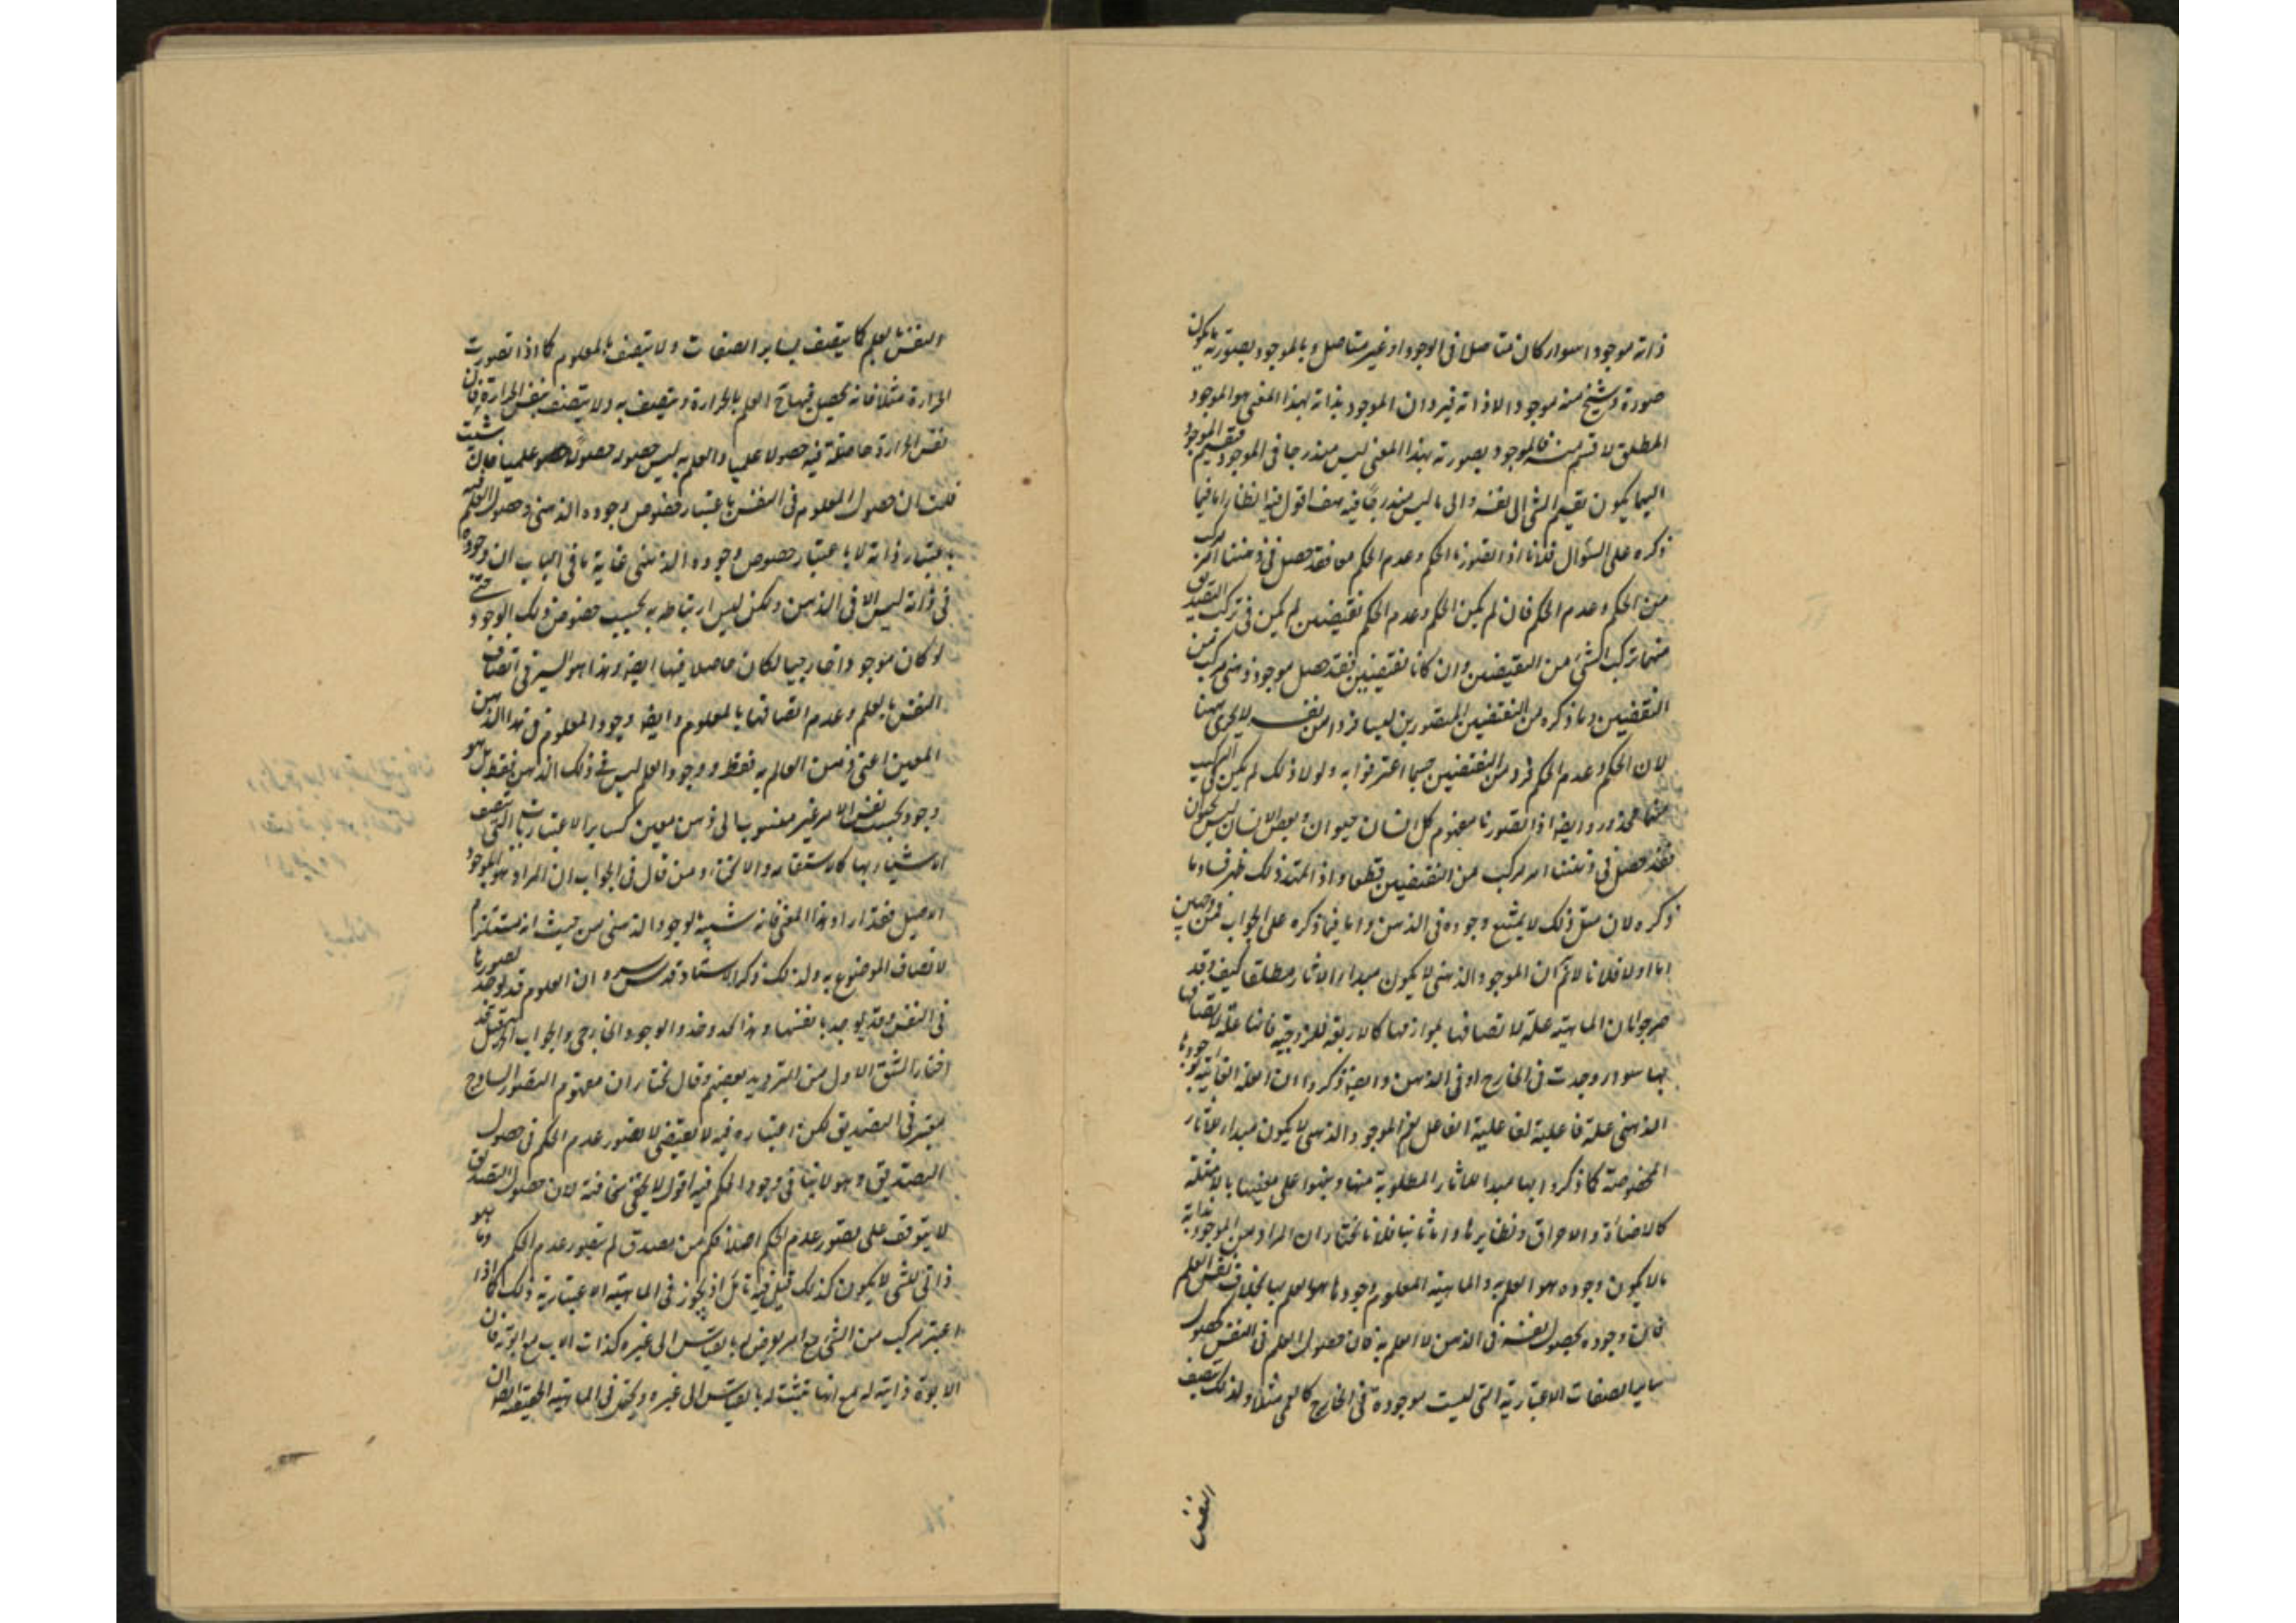 ذاته موجودا سواء كان متاصلا فى الوجود او غير متاصل و بالموجود بصورته ما يكون
صورة و شبح منه موجودا لا ذاته فيرد ان الموجود بذاته بهذا المعنى هو الموجود
المطلق لا قسم منه فالموجود بصورته بهذا المعنى ليس مندرجا فى الموجود فتقسيم الموجود
اليهما يكون تقسيم الشئ الى نفسه والى ما ليس مندرجا فيه هف اقول فيه انظار اما فيما
ذكره على السؤال فلانا اذا تصورنا الحكم وعدم الحكم معا فقد حصل فى ذهننا امر مركب
من الحكم وعدم الحكم فان لم يكن الحكم وعدم الحكم نقيضين لم يكن فى تركب التصديق
منهما تركب الشئ من النقيضين وان كانا نقيضين فقد حصل موجود ذهنى مركب من
النقيضين وما ذكره من النقيضين المتصورين ليسا فردا من نفسه لا يجرى ههنا
لان الحكم وعدم الحكم فرد من النقيضين حسبما اعترفوا به ولولا ذلك لم يكن فى التركيب
منهما محذور وايضا اذا تصورنا مفهوم كل انسان حيوان وبعض الانسان ليس بحيوان
فقد حصل فى ذهننا امر مركب من النقيضين قطعا واذا تمهد ذلك ظهر فساد ما
ذكره لان مثل ذلك لا يمتنع وجوده فى الذهن واما فيما ذكره على الجواب فمن وجهين
اما اولا فلانا لا نم ان الموجود الذهنى لا يكون مبدأ الاثار مطلقا كيف وقد
صرحوا بان الماهية علة لاتصافها بلوازمها كالاربعة للزوجية فانها علة لاتصافها
بها سواء وجدت فى الخارج او فى الذهن وايضا ذكروا ان العلة الغائية بوجودها
الذهنى علة فاعلية لفاعلية الفاعل نعم الموجود الذهنى لا يكون مبدأ للاثار
المخصوصة كما ذكروا انها مبدأ للاثار المطلوبة منها ونبهوا على تعيينها بالامثلة
كالاضاءة والاحراق ونظايرها واما ثانيا فلانا نختار ان المراد من الموجود بذاته
ما لا يكون وجوده هو العلم به والماهية المعلوم وجودها هو العلم بها بخلاف نفس العلم
فان وجوده بحصول نفسه فى الذهن لا العلم به فان حصول العلم فى النفس كحصول
ساير الصفات الاعتبارية التى ليست موجودة فى الخارج كالعمى مثلا ولذلك تتصف
النفس
والنفس بالعلم كما يتصف بساير الصفات ولا يتصف بالمعلوم كما اذا تصورت
الحرارة مثلا فانه يحصل فيها ح العلم بالحرارة ويتصف به ولا يتصف بنفس الحرارة فان
نفس الحرارة حاصلة فيه حصولا علميا والعلم به ليس حصوله حصولا علميا فان شئت
قلت ان حصول المعلوم فى النفس باعتبار خصوص وجوده الذهنى وحصول العلم فيه
باعتبار ذاته لا باعتبار خصوص وجوده الذهنى غاية ما فى الباب ان وجوده
فى ذاته ليس الا فى الذهن ولكن ليس ارتباطه به بحسب خصوص ذلك الوجود حتى
لو كان موجودا خارجيا لكان حاصلا فيها ايضا وهذا هو السر فى اتصاف
النفس بالعلم وعدم اتصافها بالمعلوم وايضا وجود المعلوم فى هذا الذهن
المعين اعنى ذهن العالم به فقط ووجود العلم ليس فى ذلك الذهن فقط بل هو
وجود بحسب نفس الامر غير منسوب الى ذهن معين كساير الاعتباريات التى تتصف
الاشياء بها كالاستقامة والانحناء ومن قال فى الجواب ان المراد هو الموجود
الاصيل فقد اراد هذا المعنى فانه شبيه بالوجود الذهنى من حيث انه مستلزم
لاتصاف الموضوع به ولذلك ذكر الاستاد قدس سره ان العلوم قد توجد بصورها
فى النفس وقد يوجد بانفسها وهذا كما وحد والوجود الخارجى والجواب
اختار الشق الاول من الترديد بعضهم وقال نختار ان مفهوم التصور الساذج
معتبر فى التصديق لكن اعتباره فيه لا يقتضى الا تصور عدم الحكم فى حصول
التصديق وهو لا ينافى وجود الحكم فيه اقول لا يخفى سخافته لان حصول التصديق
لا يتوقف على تصور عدم الحكم اصلا فكم من مصدق لم يتصور عدم الحكم وما هو
ذاتى للشئ لا يكون كذلك قيل فيه تامل اذ يجوز فى الماهية الاعتبارية ذلك كما اذا
اعتبر مركب من الشئ مع امر يعرض له بالقياس الى غيره كذات الاب مع ابوته فان
الابوة ذاتية له مع انها تثبت له بالقياس الى غيره ويتحقق فى الماهية الحقيقية ايضا